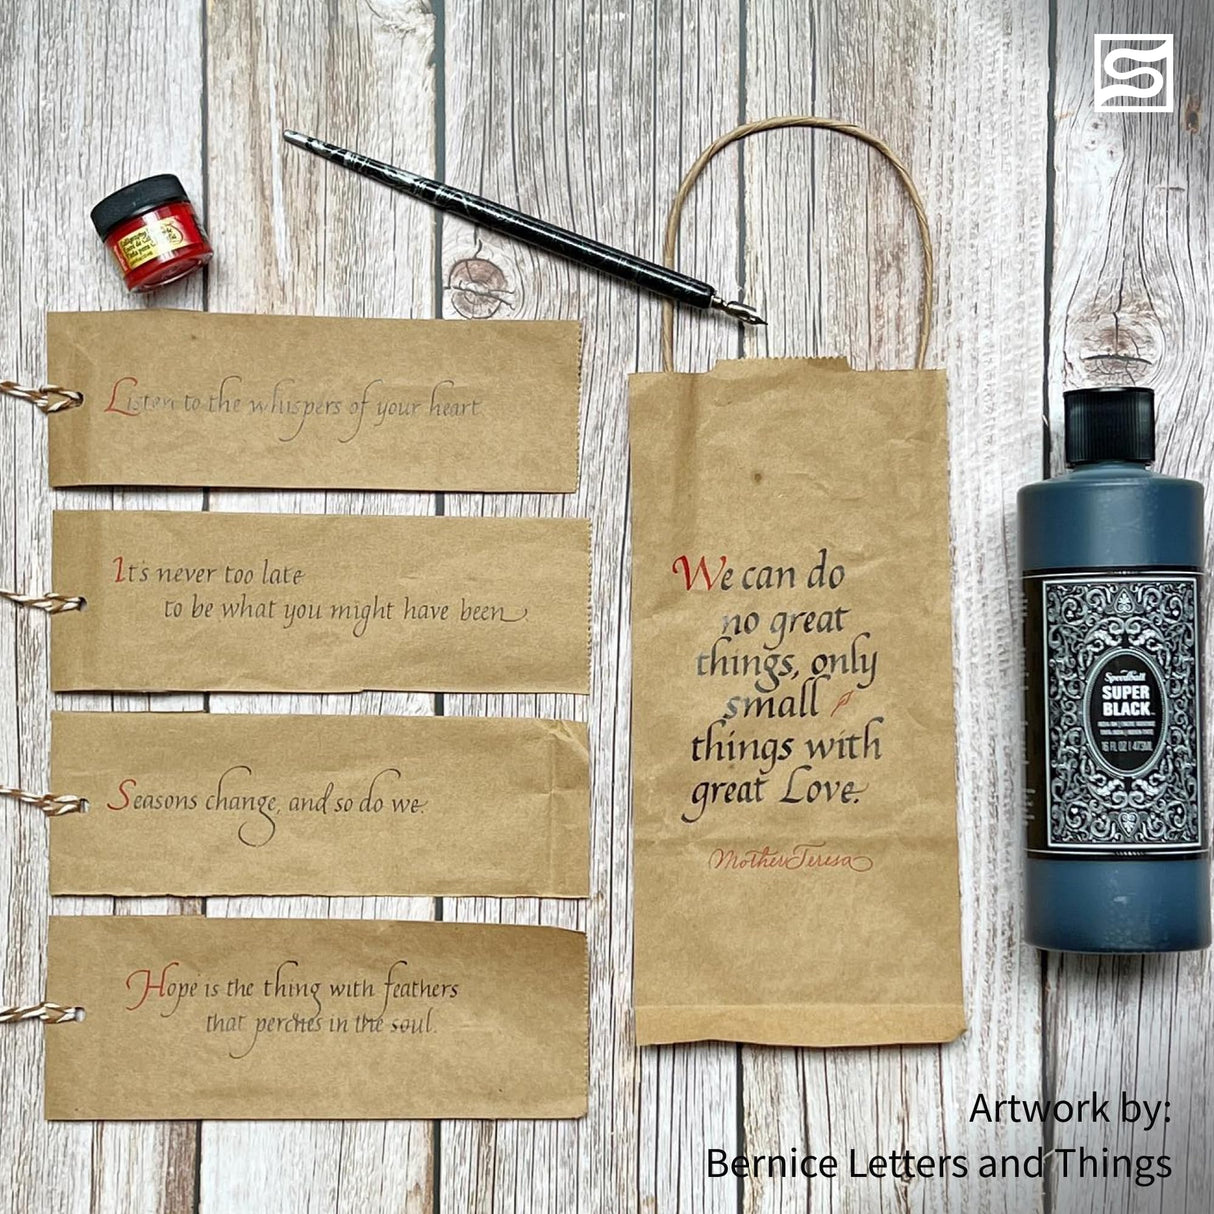 Listen to the whispers of your heart
It's never too late
to be what you might have been
Seasons change, and so do we.
Hope is the thing with feathers
that perches in the soul.
We can do
no great
things, only
small
things with
great Love.
Mother Teresa
Speedball
SUPER
BLACK
16 FL OZ | 473ML
Artwork by:
Bernice Letters and Things